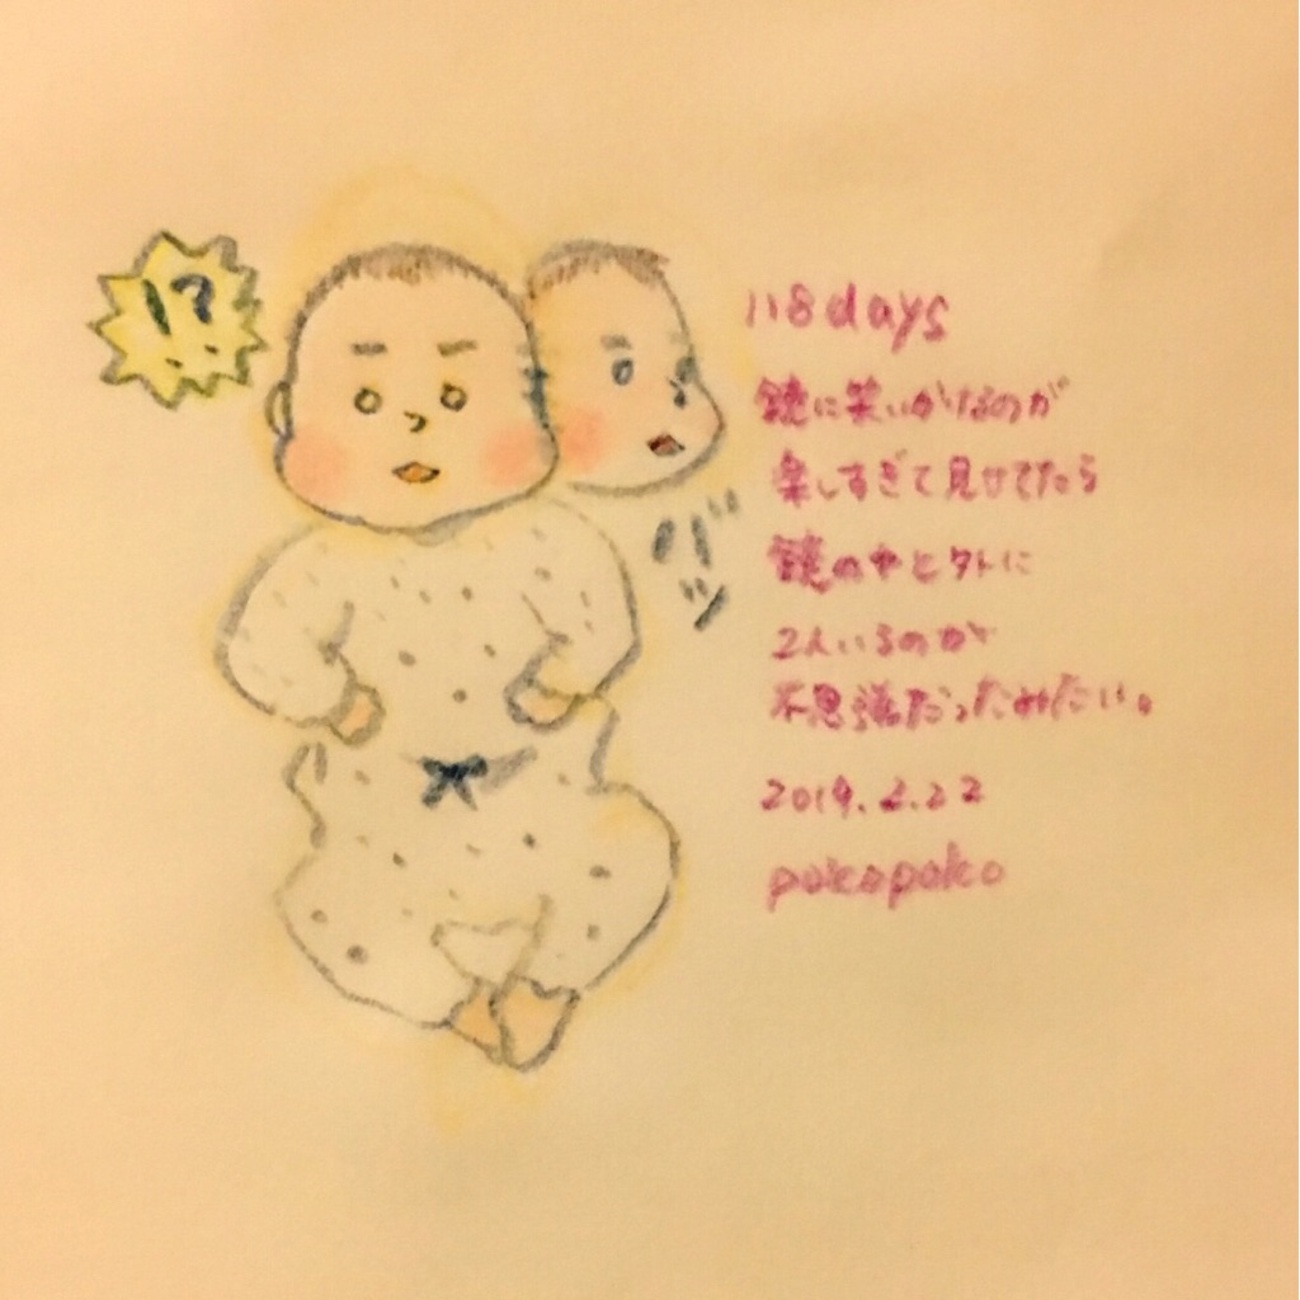 !?
118days
鏡に笑いかけるのが
楽しすぎて見せてたら
バッ
鏡の中と外に
2人いるのが
不思議だったみたい。
2019.2.22
pokopoko